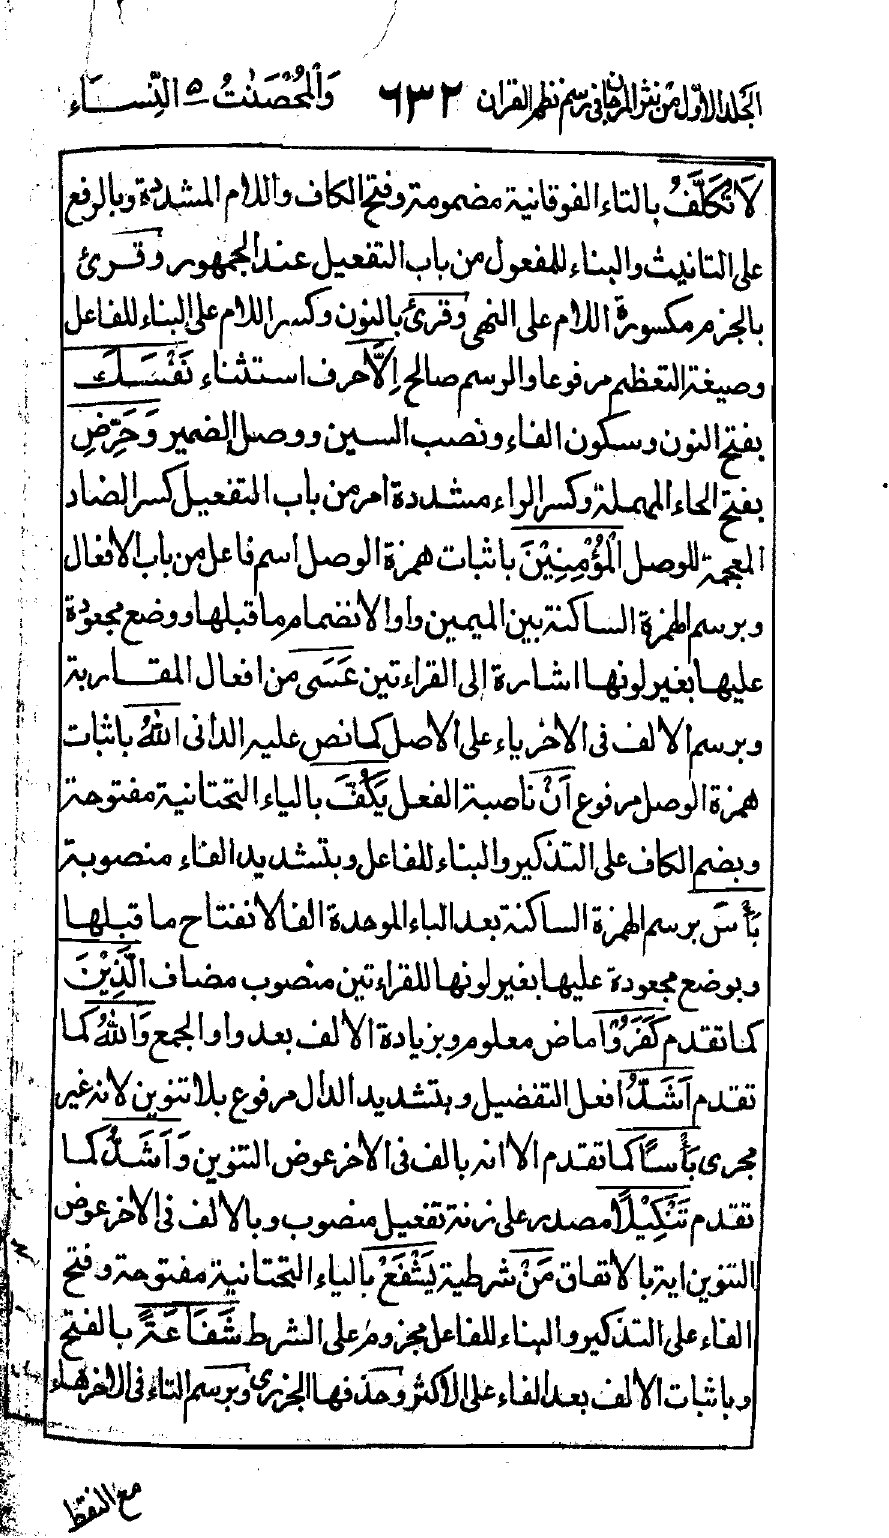 الجلد الاول من نثر المرجان فى رسم نظم القران ٦٣٢ وَالْمُحْصَنٰتُ ٥ النِّسَاء
لَا تُكَلَّفُ بالتاء الفوقانية مضمومة وفتح الكاف واللام المشددة وبالرفع
على التانيث والبناء للمفعول من باب التفعيل عند الجمهور وقرئ
بالجزم مكسورة اللام على النهى وقرئ بالنون وكسر اللام على البناء للفاعل
وصيغة التعظيم مرفوعا والرسم صالح اِلَّا حرف استثناء نَفْسَكَ
بفتح النون وسكون الفاء ونصب السين ووصل الضمير وَحَرِّضِ
بفتح الحاء المهملة وكسر الراء مشددة امر من باب التفعيل كسر الضاد
المعجمة للوصل الْمُؤْمِنِيْنَ باثبات همزة الوصل اسم فاعل من باب الافعال
وبرسم الهمزة الساكنة بين الميمين واوا لانضمام ما قبلها ووضع مجعودة
عليها بغير لونها اشارة الى القراءتين عَسَى من افعال المقاربة
وبرسم الالف فى الاخر ياء على الاصل كما نص عليه الدانى اللّٰهُ باثبات
همزة الوصل مرفوع اَنْ ناصبة الفعل يَكُفَّ بالياء التحتانية مفتوحة
وبضم الكاف على التذكير والبناء للفاعل وبتشديد الفاء منصوبة
بَأْسَ برسم الهمزة الساكنة بعد الباء الموحدة الفا لانفتاح ما قبلها
وبوضع مجعودة عليها بغير لونها للقراءتين منصوب مضاف الَّذِيْنَ
كما تقدم كَفَرُوْا ماض معلوم وبزيادة الالف بعد واو الجمع وَاللّٰهُ كما
تقدم اَشَدُّ افعل التفضيل وبتشديد الدال مرفوع بلا تنوين لانه غير
مجرى بَأْسًا كما تقدم الا انه بالف فى الاخر عوض التنوين وَاَشَدُّ كما
تقدم تَنْكِيْلًا مصدر على زنة تفعيل منصوب وبالالف فى الاخر عوض
التنوين اية بالاتفاق مَنْ شرطية يَشْفَعْ بالياء التحتانية مفتوحة وفتح
الفاء على التذكير والبناء للفاعل مجزوم على الشرط شَفَاعَةً بالفتح
وباثبات الالف بعد الفاء على الاكثر وحذفها الجزرى وبرسم التاء فى الاخر هاء
مع النقط